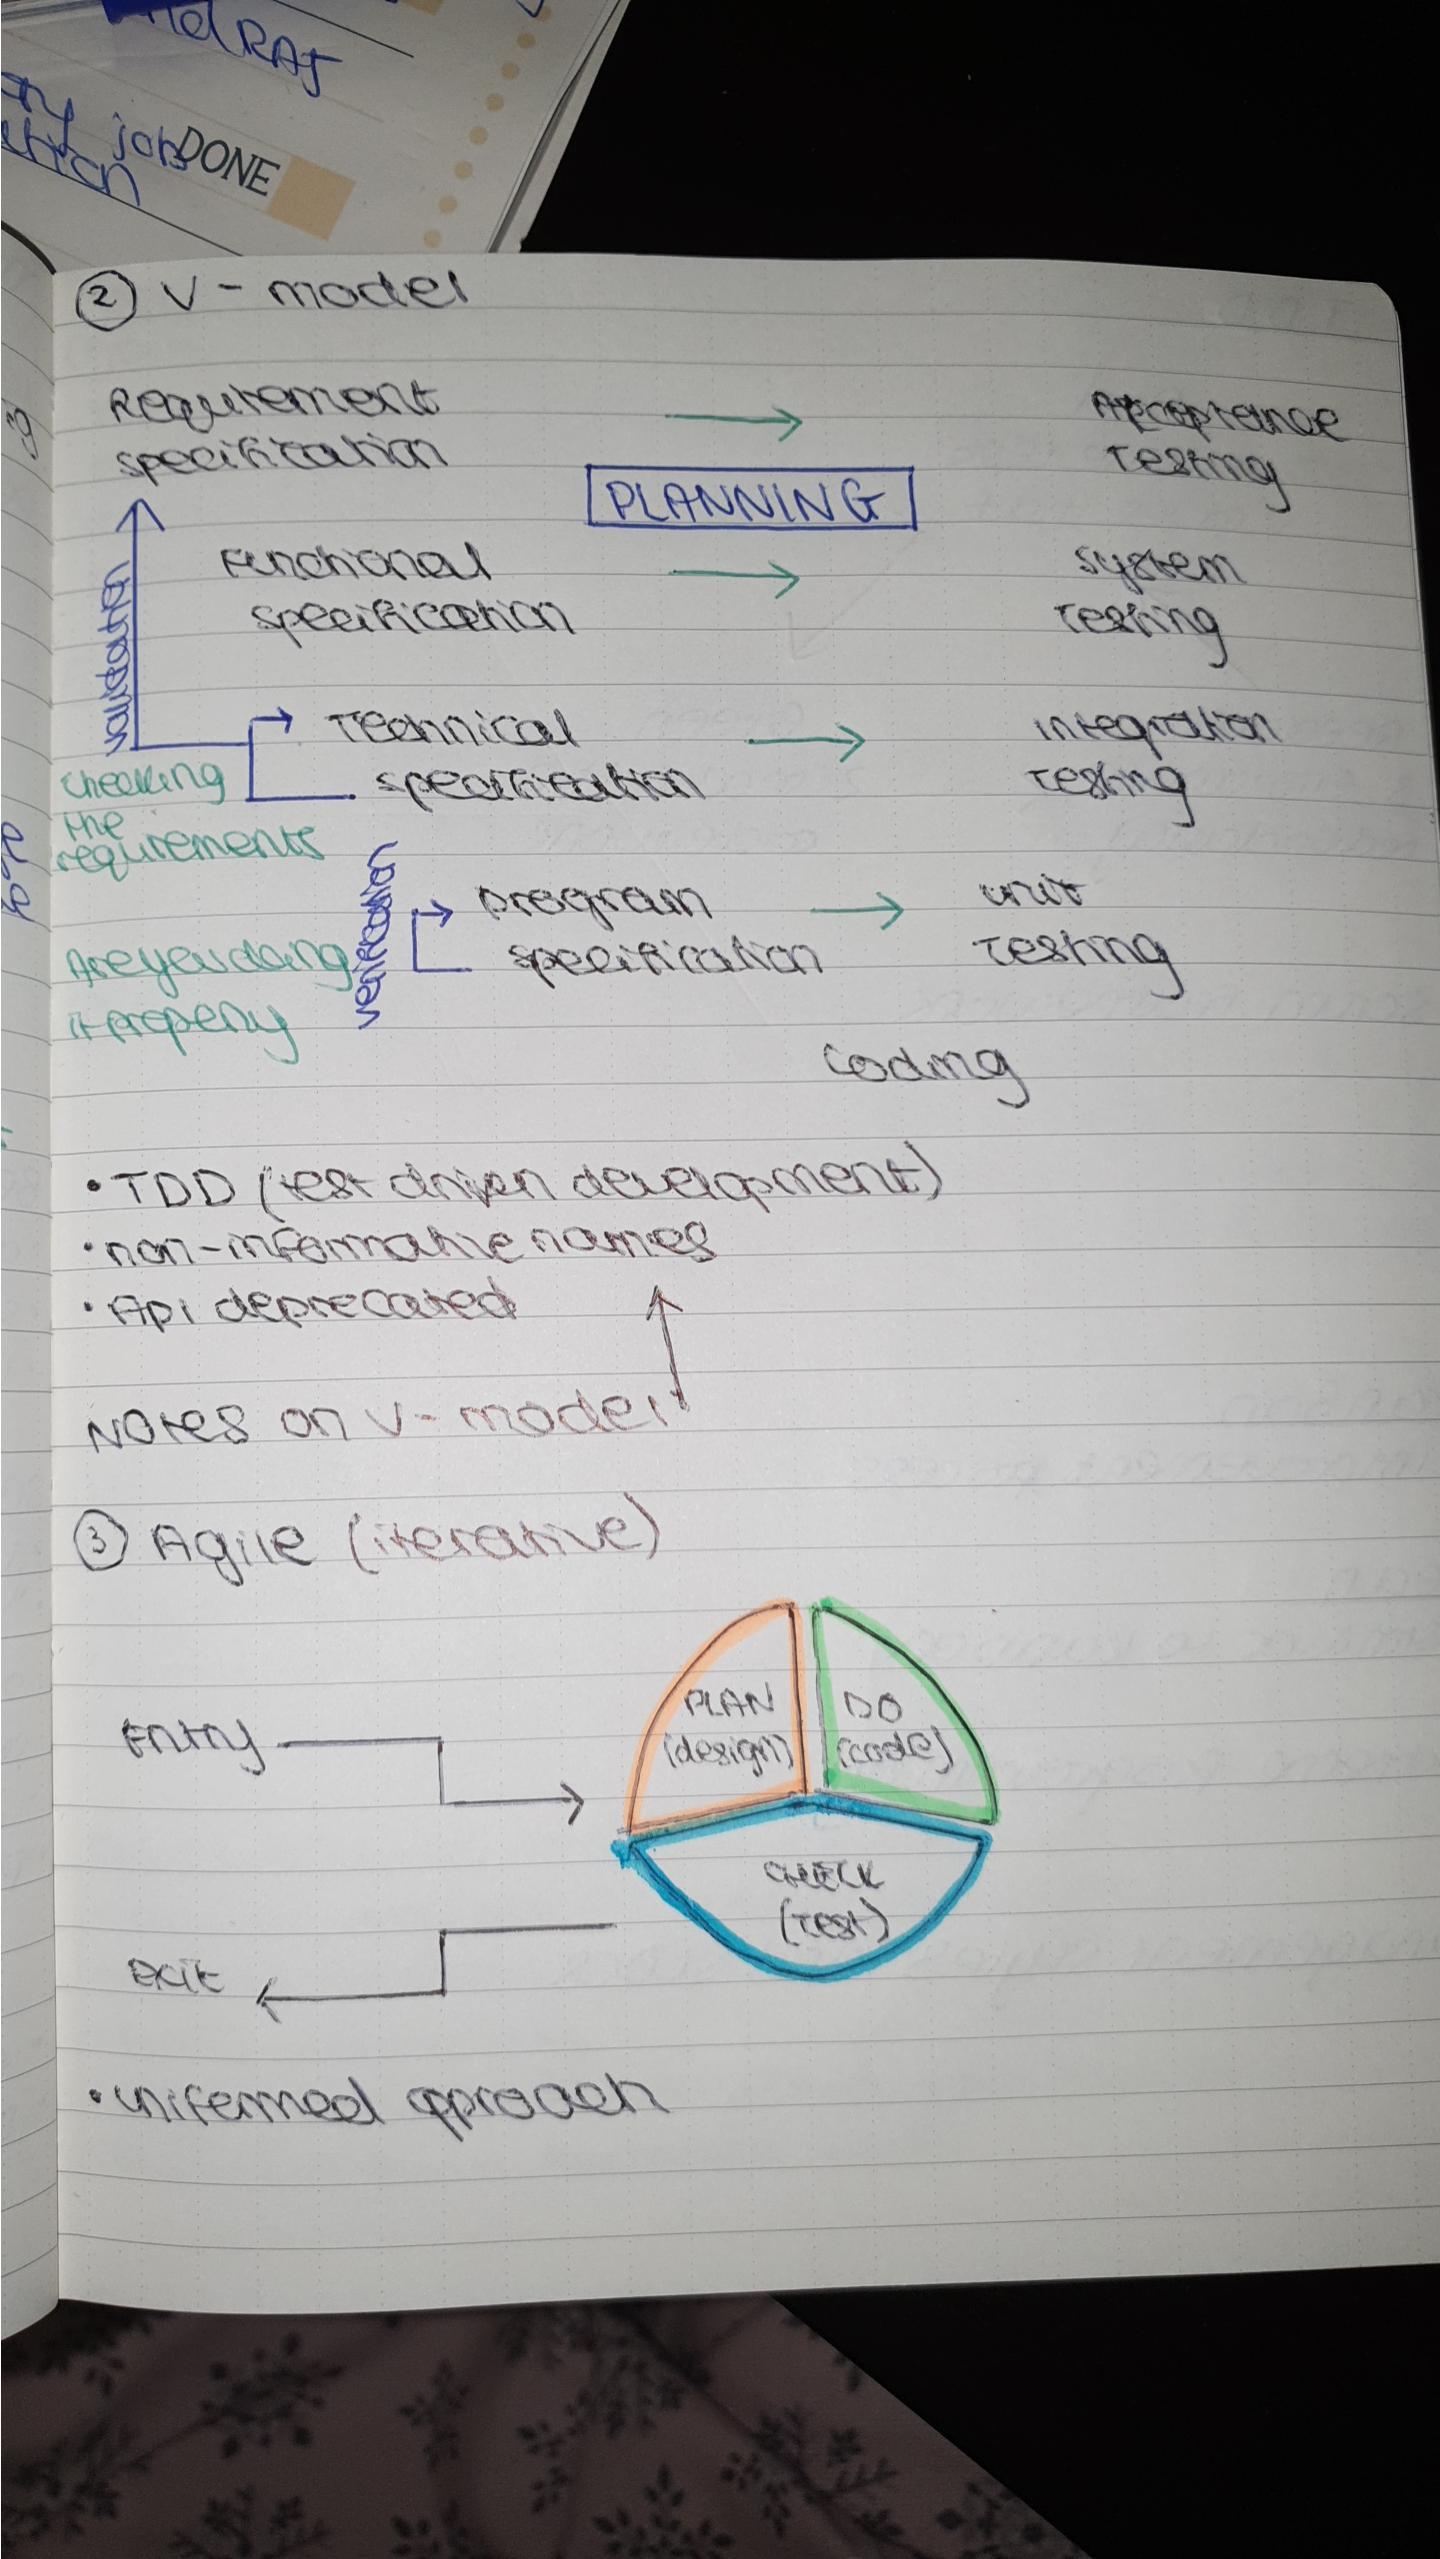 nd RAJ
job DONE
② V-model
Requirement
specification
Acceptance
Testing
PLANNING
Functional
specification
system
Testing
validation
Technical
specification
integration
testing
checking
the
requirements
verification
program
specification
unit
Testing
Are you doing
it properly
coding
• TDD (test driven development)
• non-informative names
• Api deprecated
Notes on V-model
③ Agile (iterative)
PLAN
(design)
DO
(code)
Entry
CHECK
(Test)
Exit
• uniformed approach